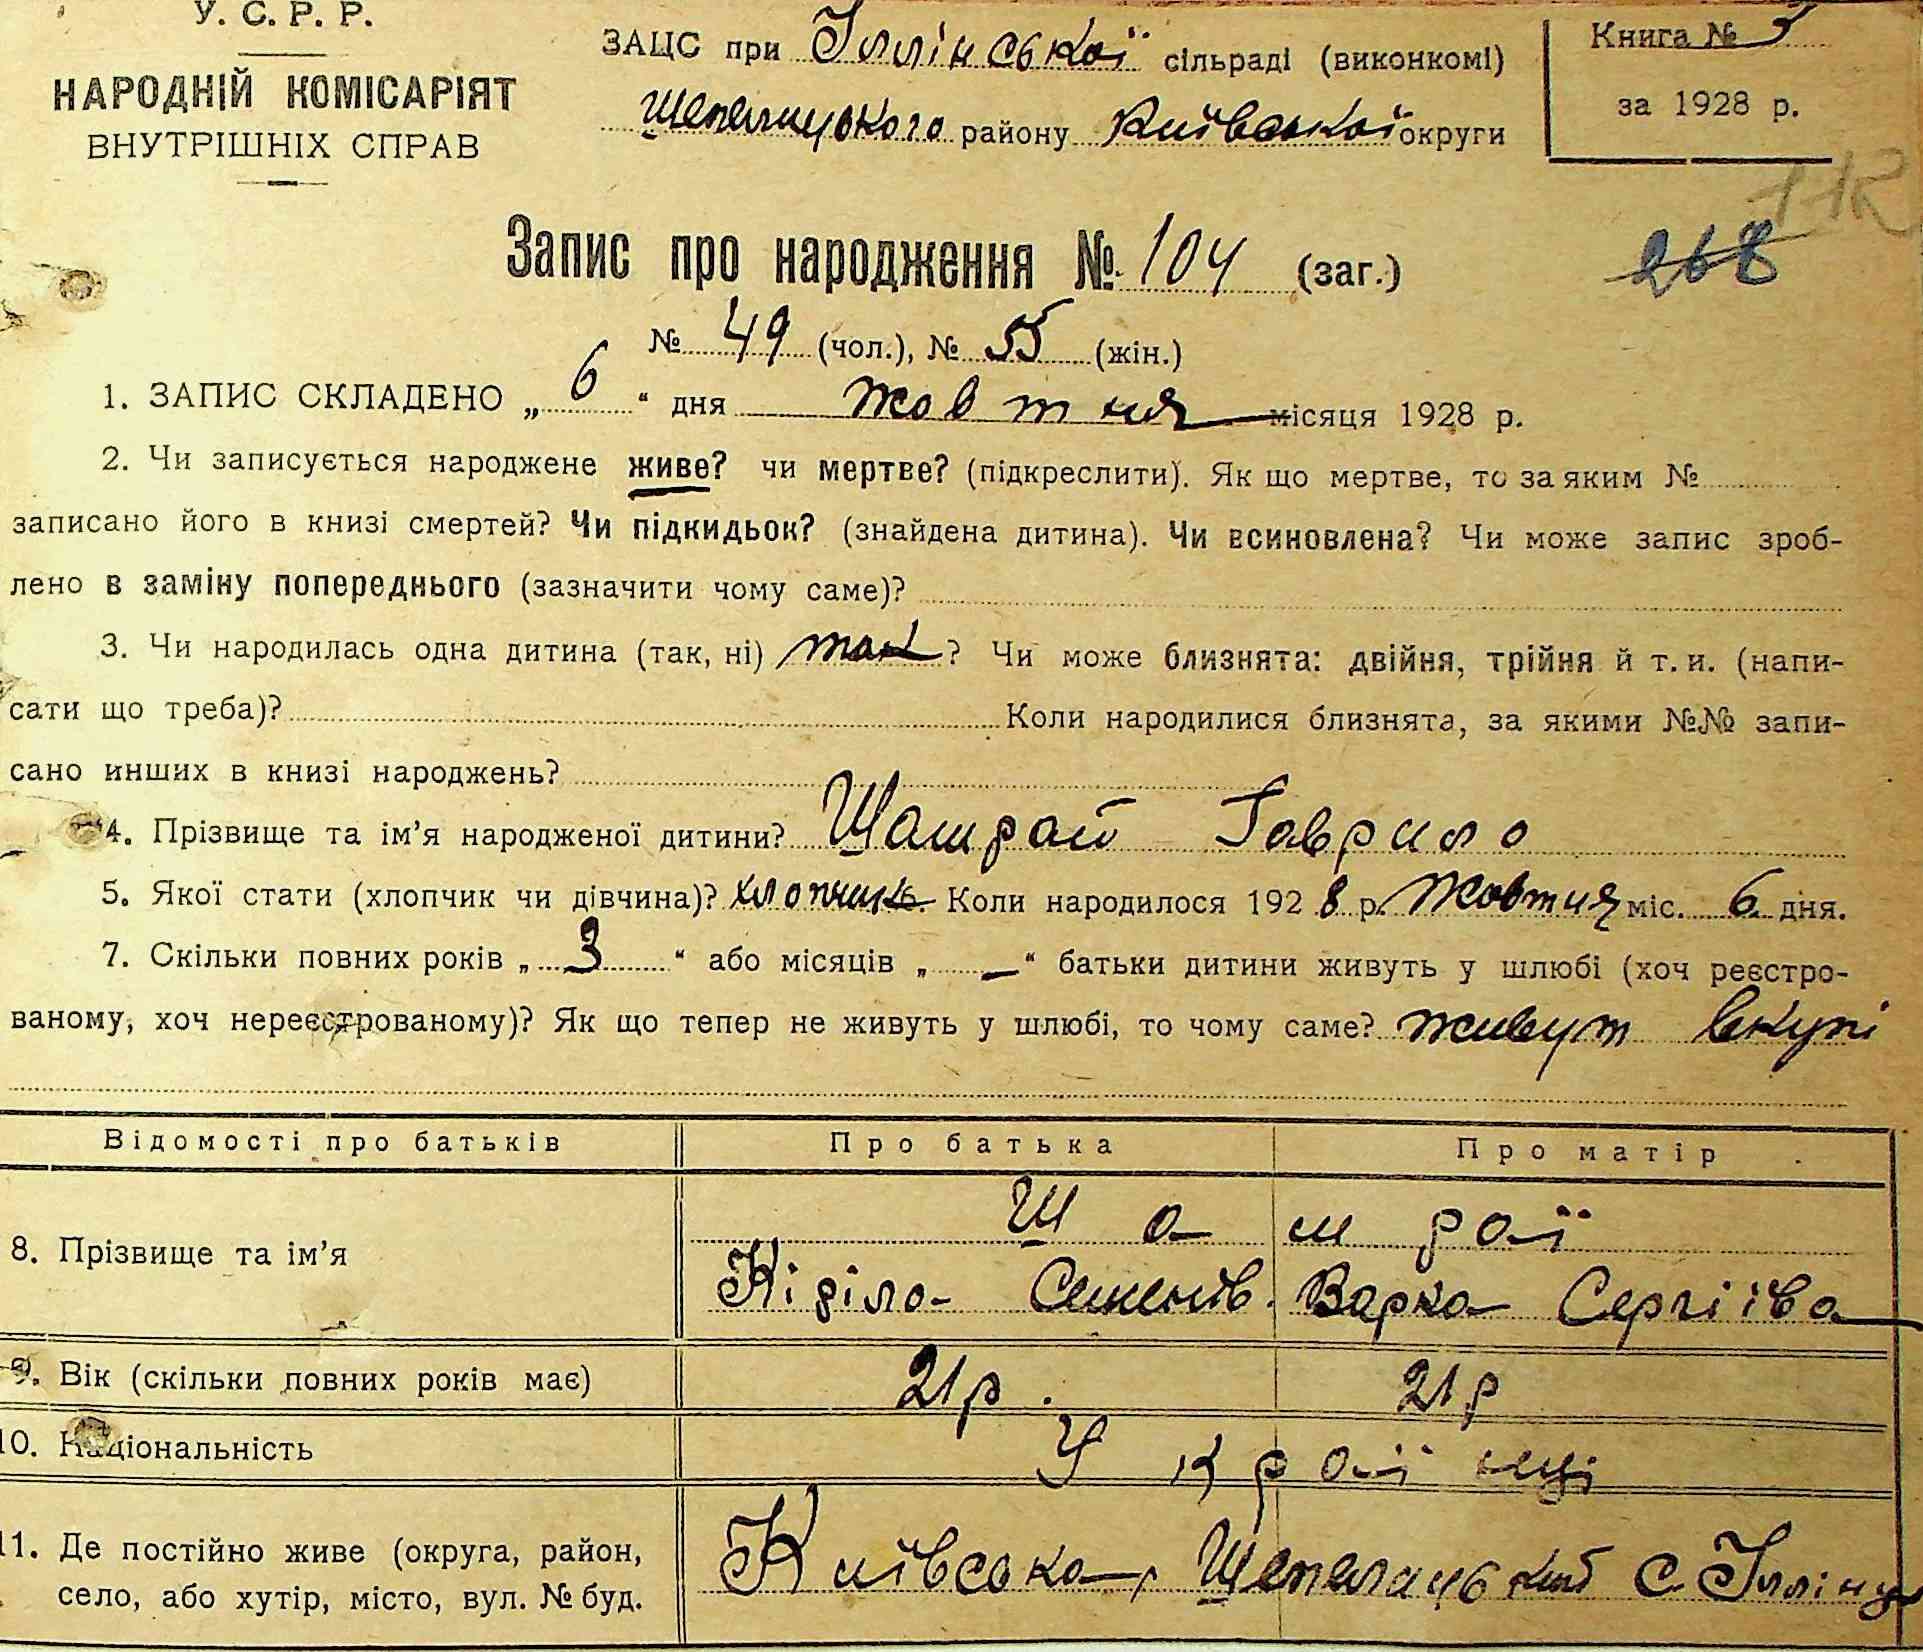 У. С. Р. Р.
НАРОДНІЙ КОМІСАРІЯТ
ВНУТРІШНІХ СПРАВ
ЗАЦС при Іллінської сільраді (виконкомі)
Шепелицького району Київської округи
Книга № 3
за 1928 р.
268
Запис про народження № 104 (заг.)
№ 49 (чол.), № 55 (жін.)
1. ЗАПИС СКЛАДЕНО „ 6 “ дня жовтня місяця 1928 р.
2. Чи записується народжене живе? чи мертве? (підкреслити). Як що мертве, то за яким №
записано його в книзі смертей? Чи підкидьок? (знайдена дитина). Чи всиновлена? Чи може запис зроб-
лено в заміну попереднього (зазначити чому саме)?
3. Чи народилась одна дитина (так, ні) так ? Чи може близнята: двійня, трійня й т. и. (напи-
сати що треба)? Коли народилися близнята, за якими №№ запи-
сано инших в книзі народжень?
4. Прізвище та ім’я народженої дитини? Шашрай Гаврило
5. Якої стати (хлопчик чи дівчина)? хлопчик. Коли народилося 1928 р. Жовтня міс. 6 дня.
7. Скільки повних років „ 3 “ або місяців „ – “ батьки дитини живуть у шлюбі (хоч реєстро-
ваному, хоч нереєстрованому)? Як що тепер не живуть у шлюбі, то чому саме? живут вкупі
Відомості про батьків Про батька Про матір
8. Прізвище та ім’я Шашраї
Кіріло Семенів. Варка Сергіїва
9. Вік (скільки повних років має) 21 р. 21 р
10. Національність Українці
11. Де постійно живе (округа, район,
село, або хутір, місто, вул. № буд. Київська, Шепелицький с. Іллінці